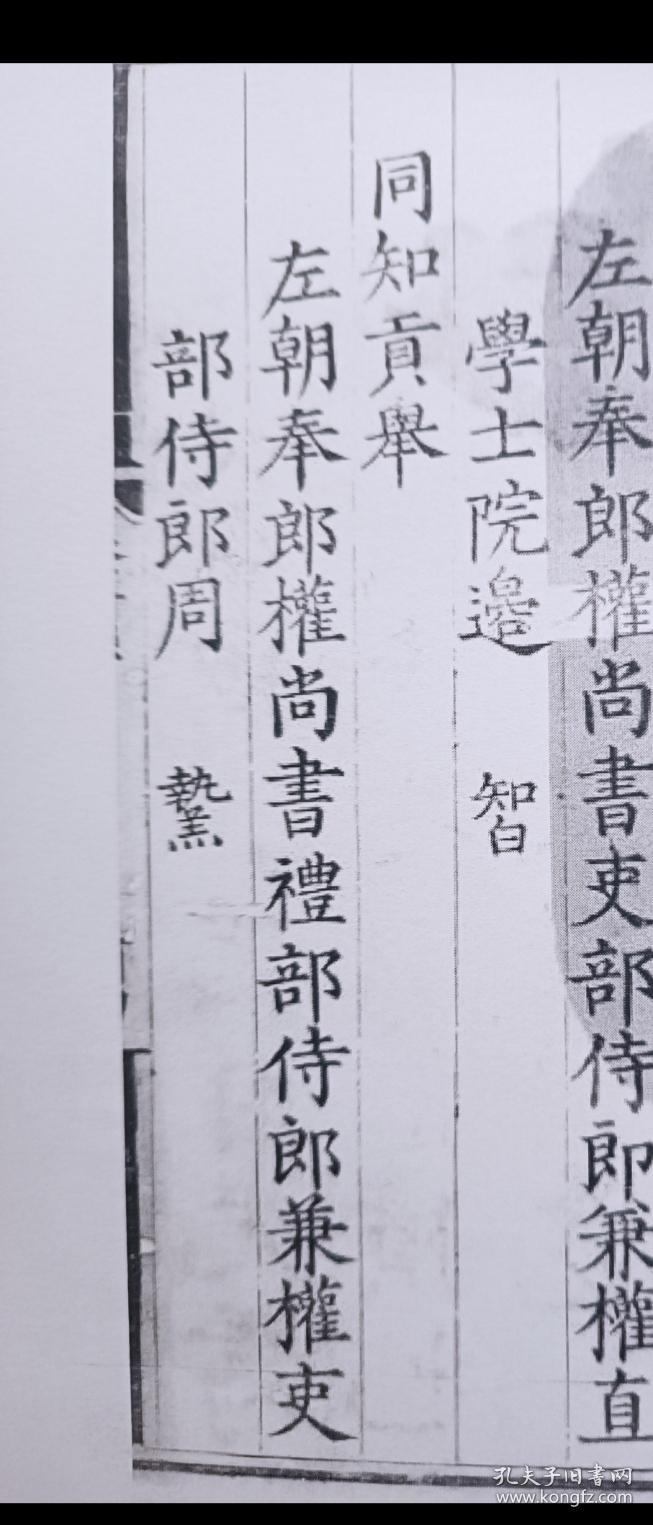 左朝奉郎權尚書吏部侍郎兼權直
學士院邊 知白
同知貢舉
左朝奉郎權尚書禮部侍郎兼權吏
部侍郎周 執羔
孔夫子旧書网
www.kongfz.com